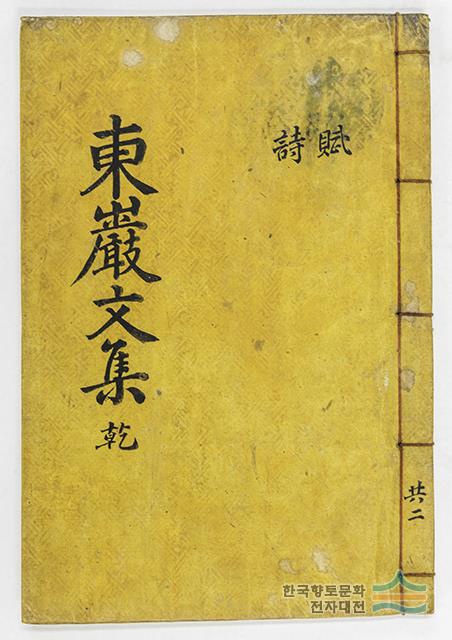 賦
詩
東巖文集 乾
共二
한국향토문화
전자대전